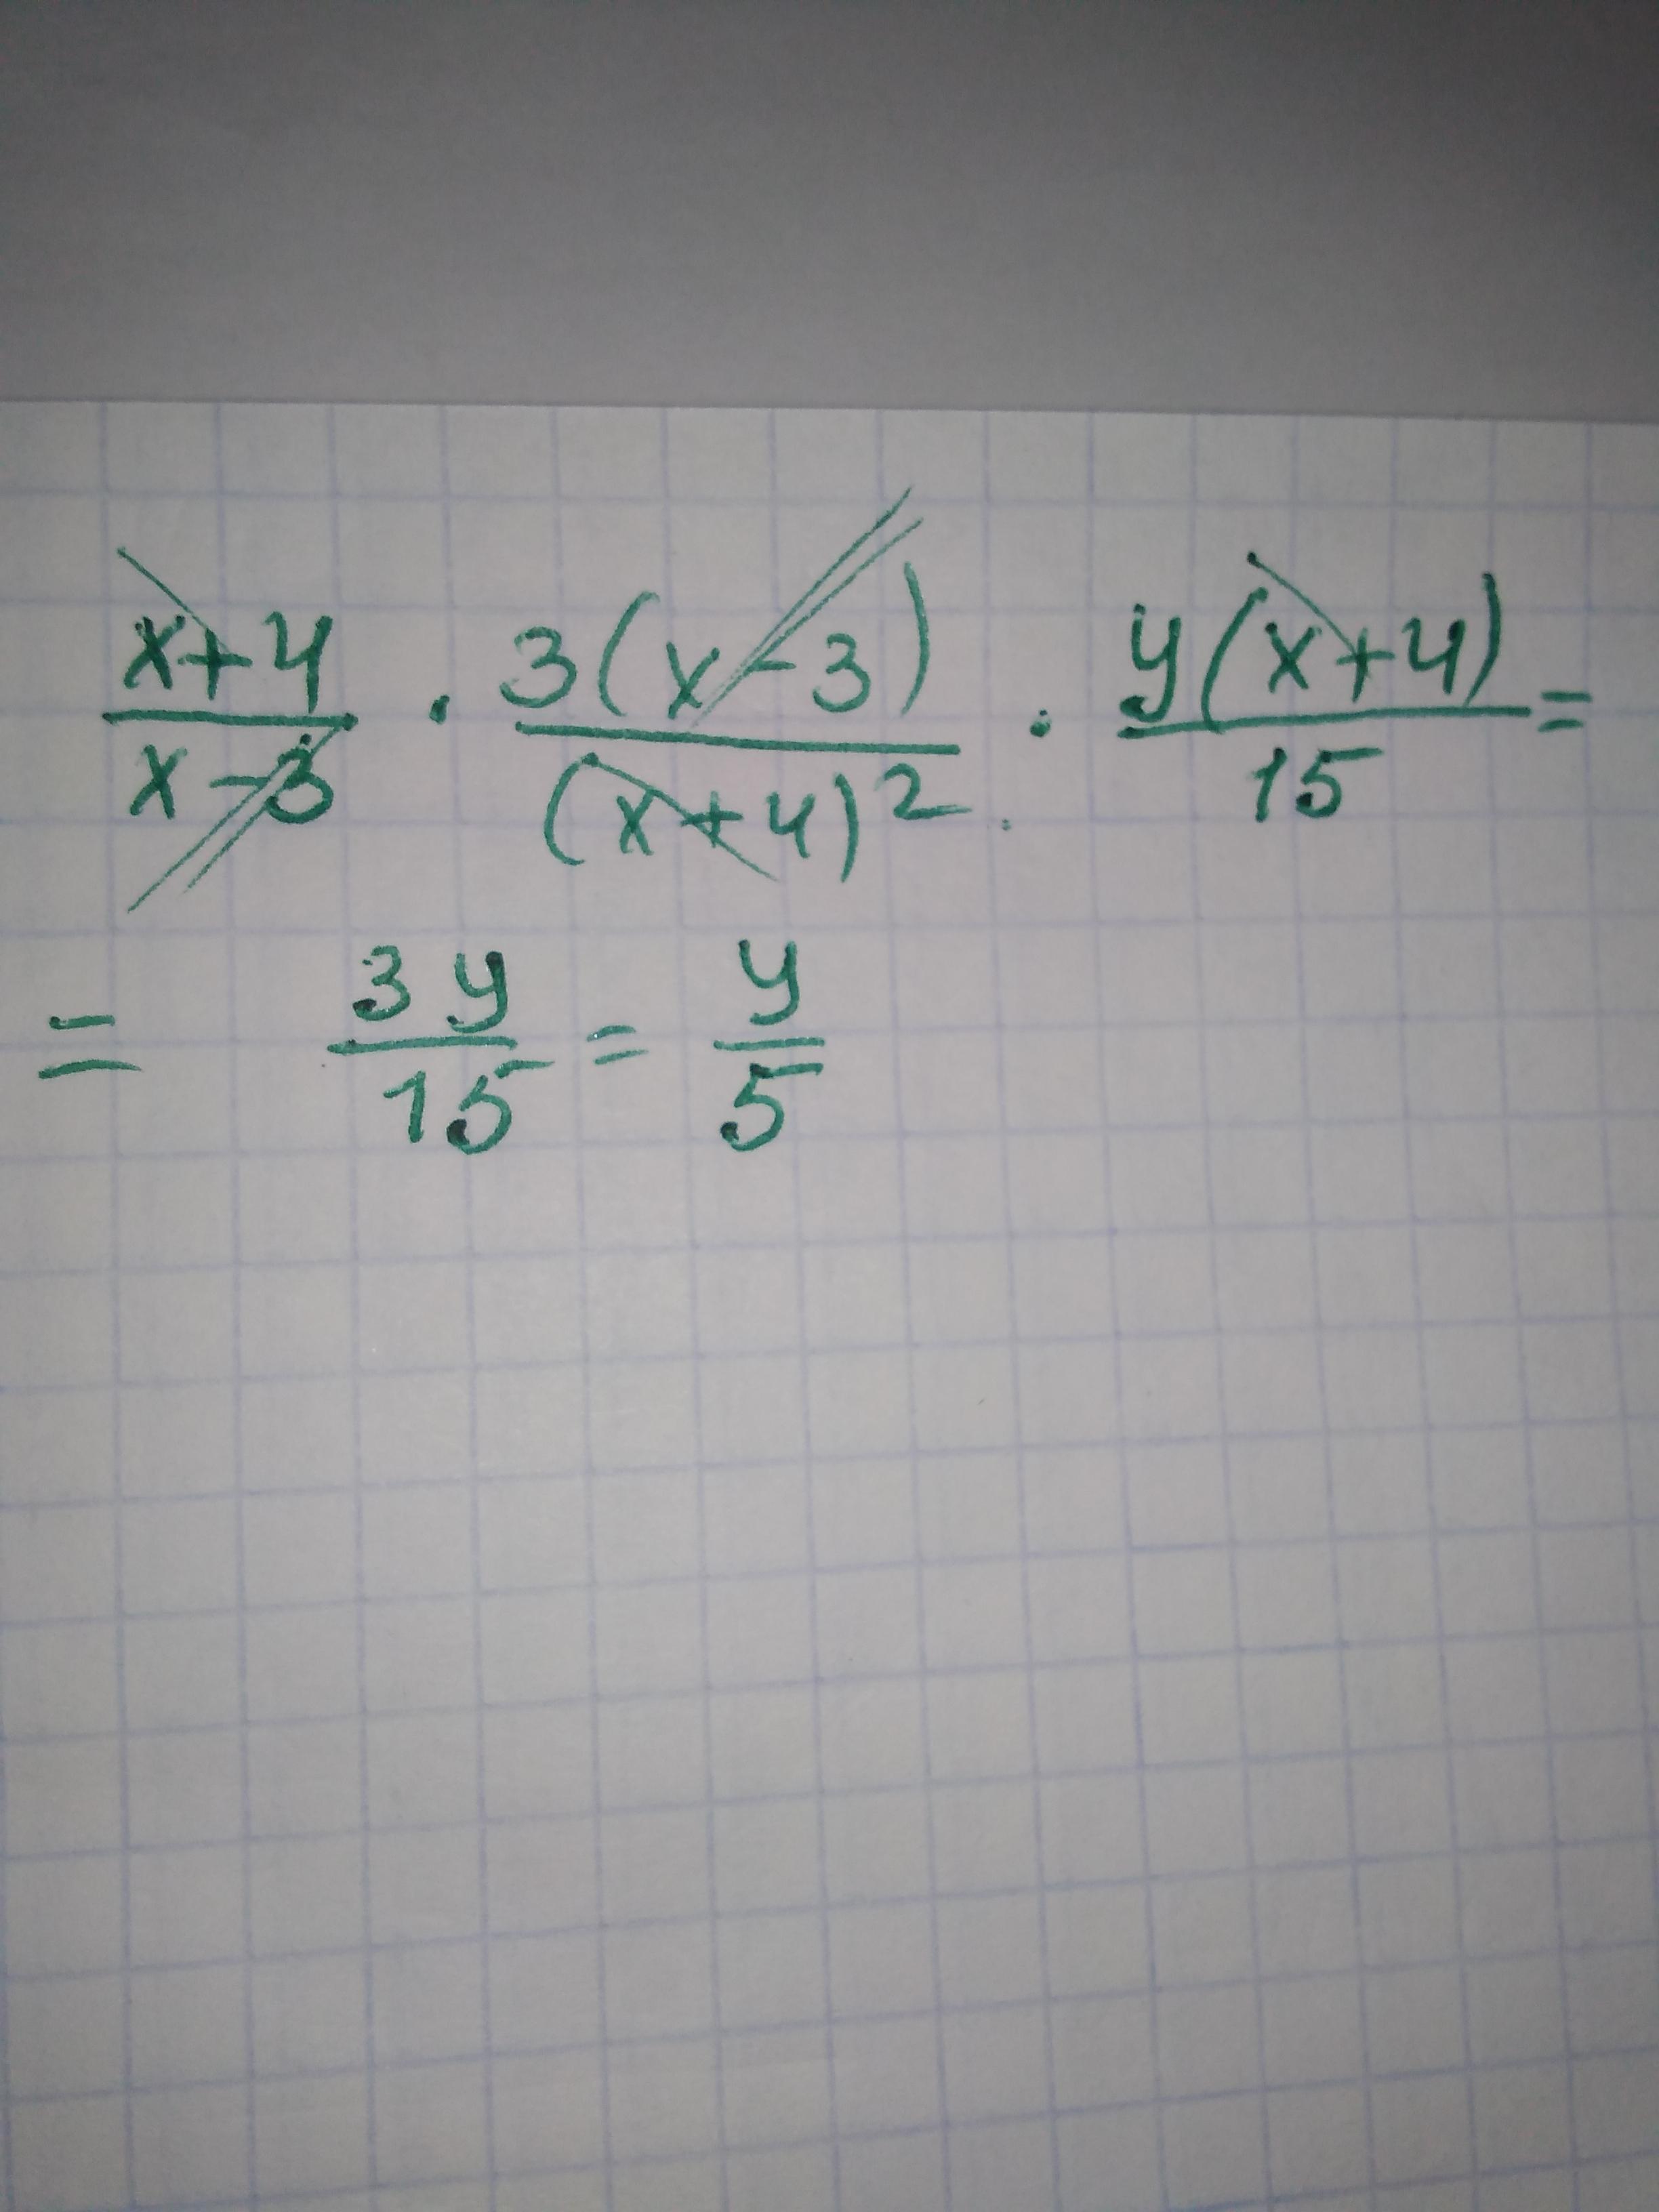 (x+4)/(x-3) · 3(x-3)/(x+4)² · y(x+4)/15 =
= 3y/15 = y/5